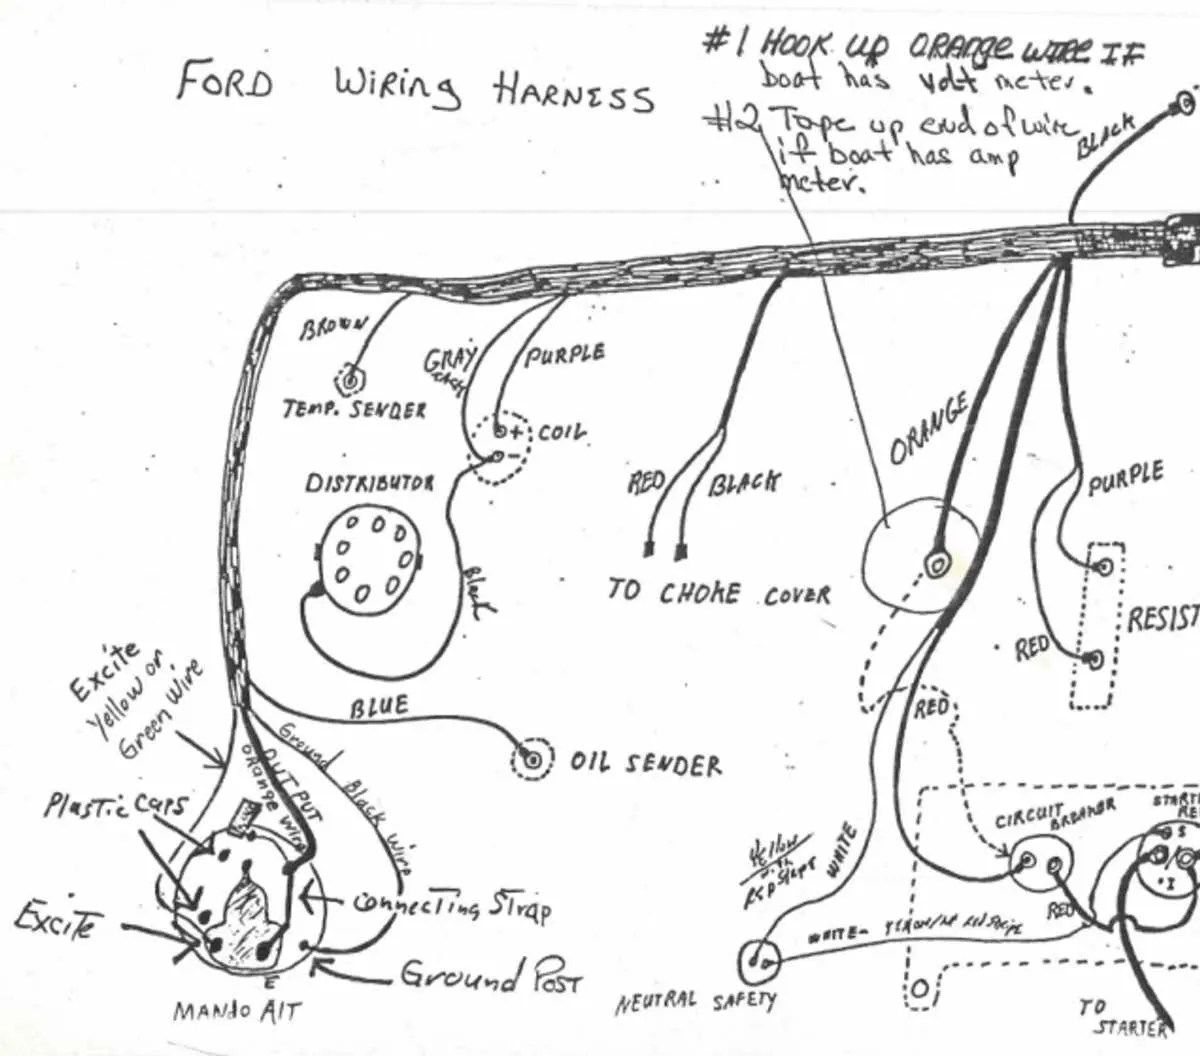 FORD WIRING HARNESS
#1 HOOK UP ORANGE WIRE IF
boat has volt meter.
#2 Tape up end of wire
if boat has amp
meter.
BLACK
BROWN
TEMP. SENDER
GRAY
PURPLE
+ COIL
-
DISTRIBUTOR
Black
RED
BLACK
TO CHOKE COVER
ORANGE
PURPLE
RED
RESIST
Excite
Yellow or
Green Wire
BLUE
OIL SENDER
Ground Black Wire
OUTPUT
Orange Wire
Plastic Caps
Excite
Connecting Strap
Ground Post
E
MANDO AlT
RED
CIRCUIT
BREAKER
START
RE
S
I
RED
Yellow
WHITE
WHITE-
NEUTRAL SAFETY
TO
STARTER